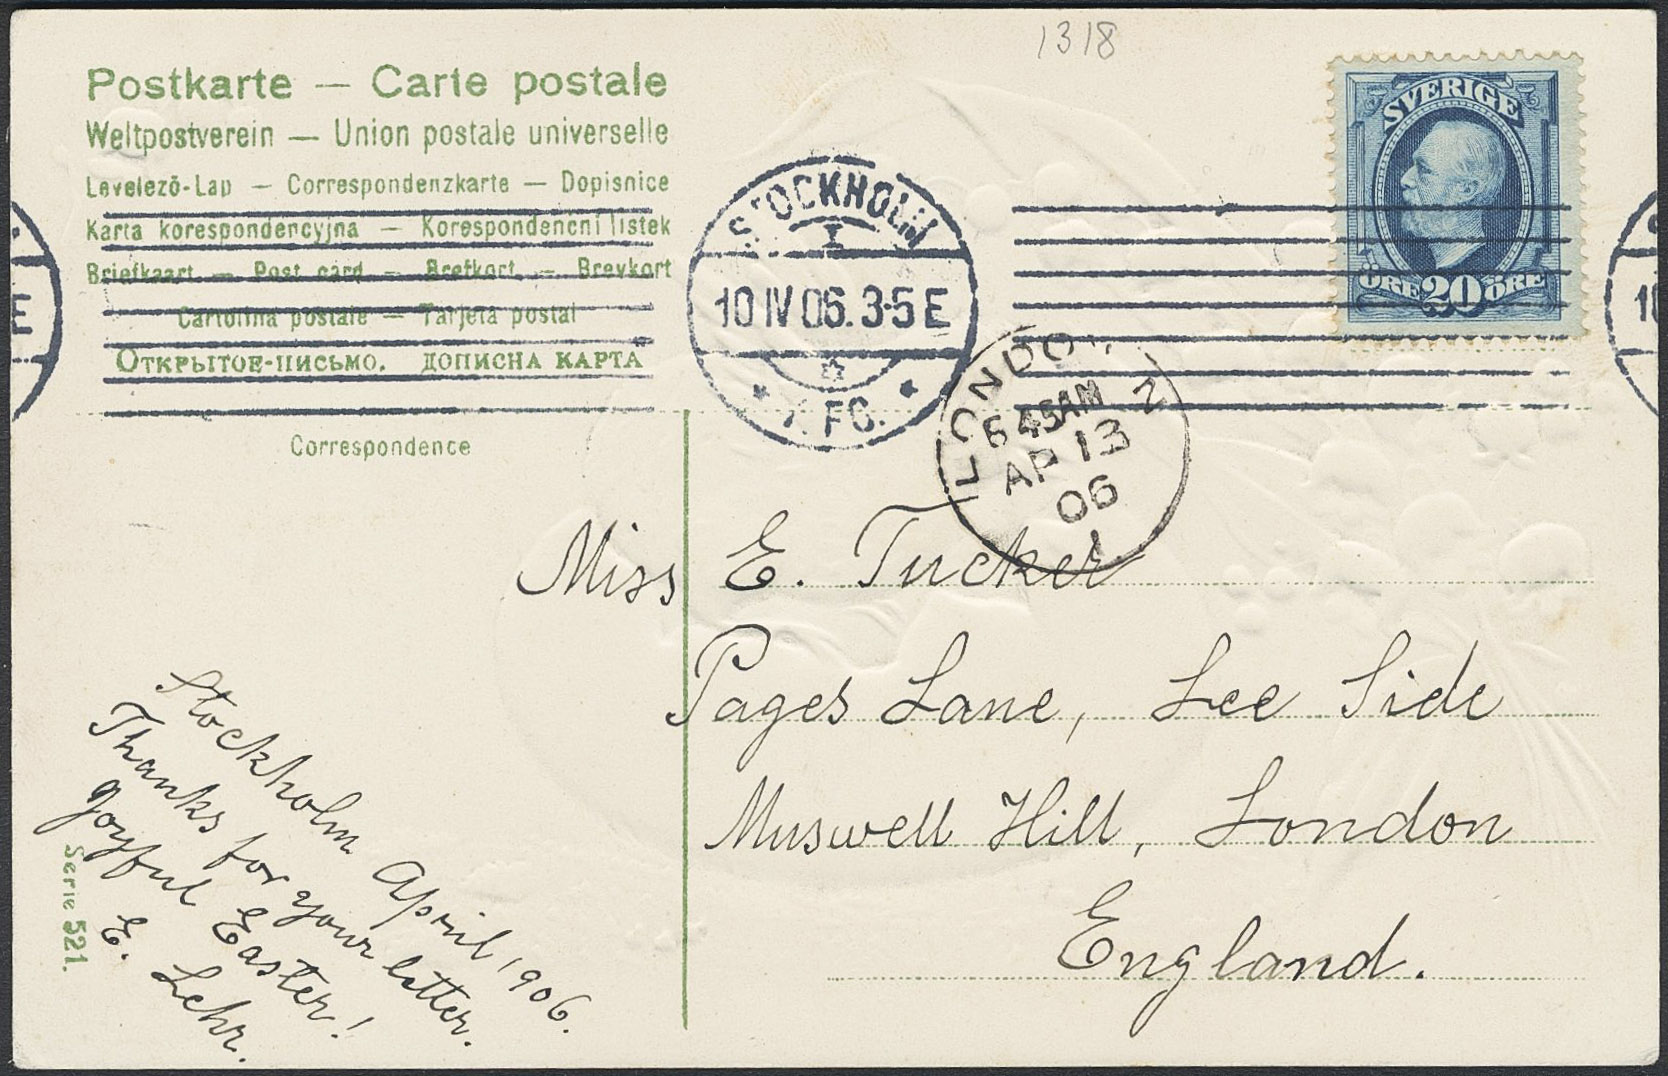 1318
Postkarte — Carte postale
Weltpostverein — Union postale universelle
Levelező-Lap — Correspondenzkarte — Dopisnice
Karta korespondencyjna — Korespondenční lístek
Briefkaart — Post card — Brefkort — Brevkort
Cartolina postale — Tarjeta postal
Открытое-письмо. дописна карта
Correspondence
SVERIGE
ÖRE 20 ÖRE
STOCKHOLM
I
10 IV 06. 3-5 E
FG.
LONDON N
6 45 AM
AP 13
06
Miss E. Tucker
Pages Lane, Lee Side
Muswell Hill, London
England.
Stockholm April 1906.
Thanks for your letter.
Joyful Easter!
E. Lehr.
Serie 521.
E
10